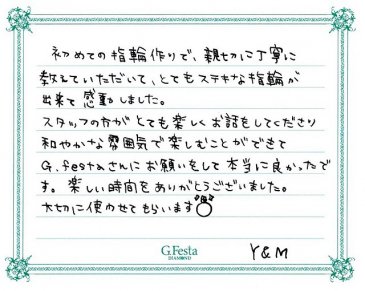 初めての指輪作りで、親切に丁寧に
教えていただいて、とてもステキな指輪が
出来て感動しました。
スタッフの方がとても楽しくお話をしてくださり
和やかな雰囲気で楽しむことができて
G.festaさんにお願いをして本当に良かったで
す。楽しい時間をありがとうございました。
大切に使わせてもらいます
G.Festa
DIAMOND
Y&M